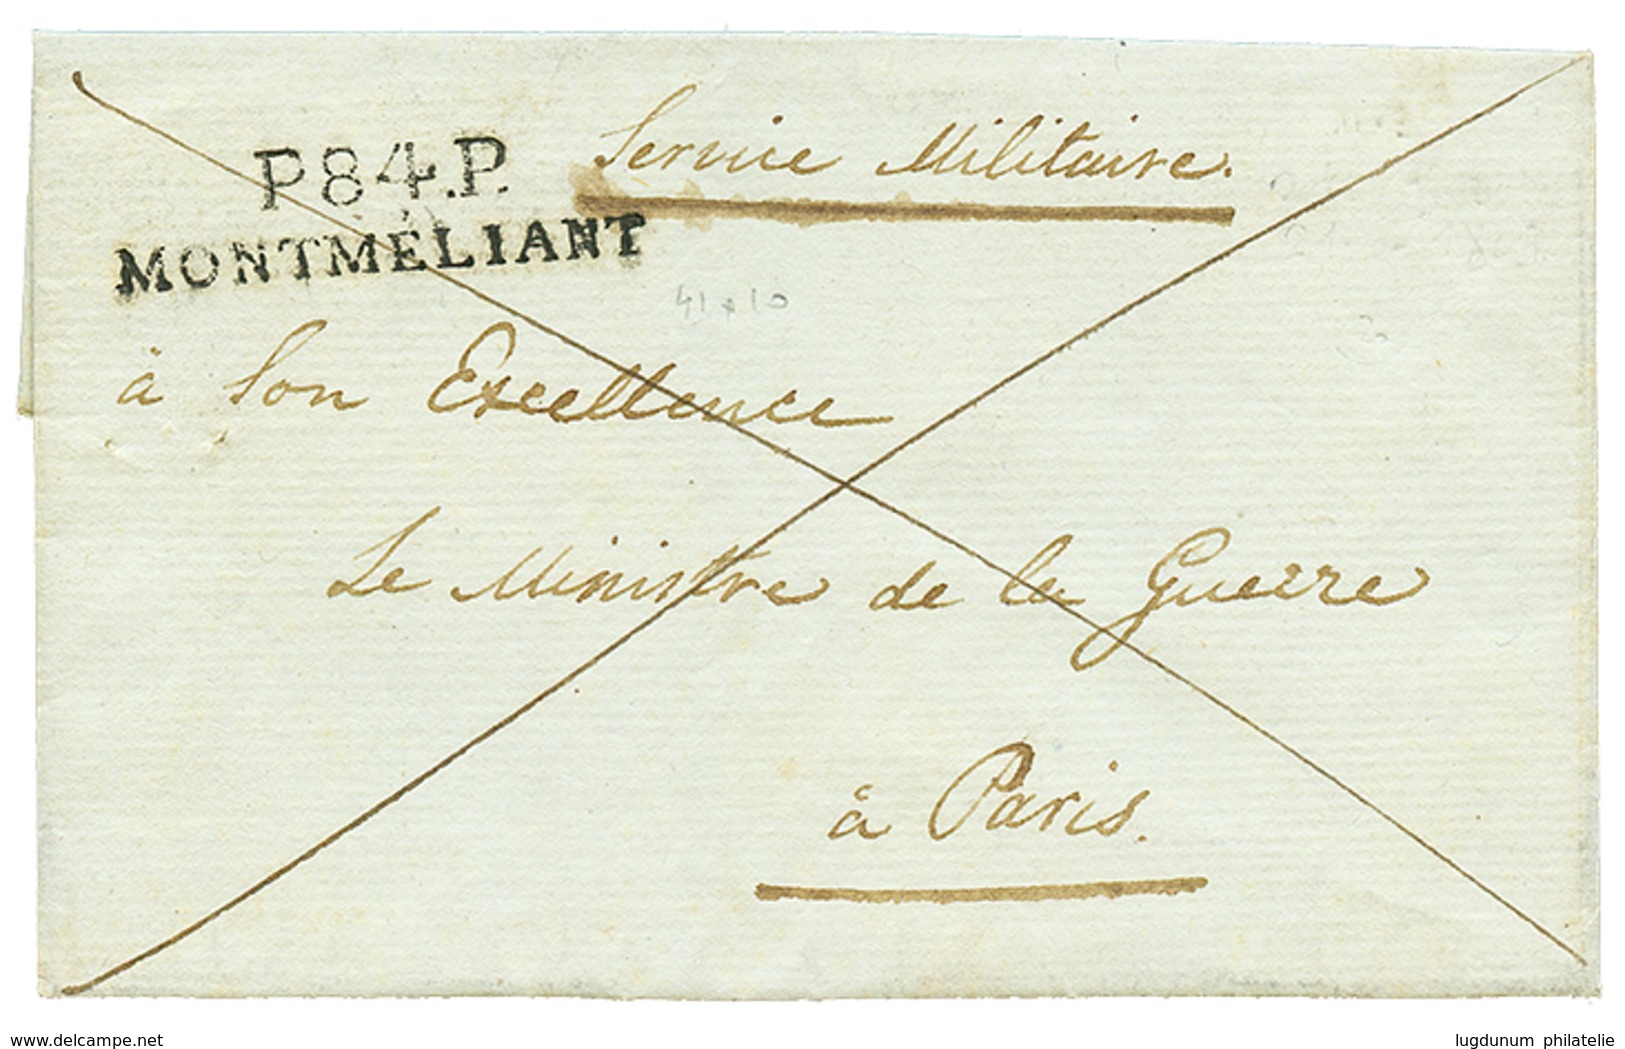 Service Militaire.
P84.P.
MONTMÉLIANT
41 x 10
à Son Excellence
Le Ministre de la Guerre
à Paris.
www.delcampe.net
lugdunum philatelie